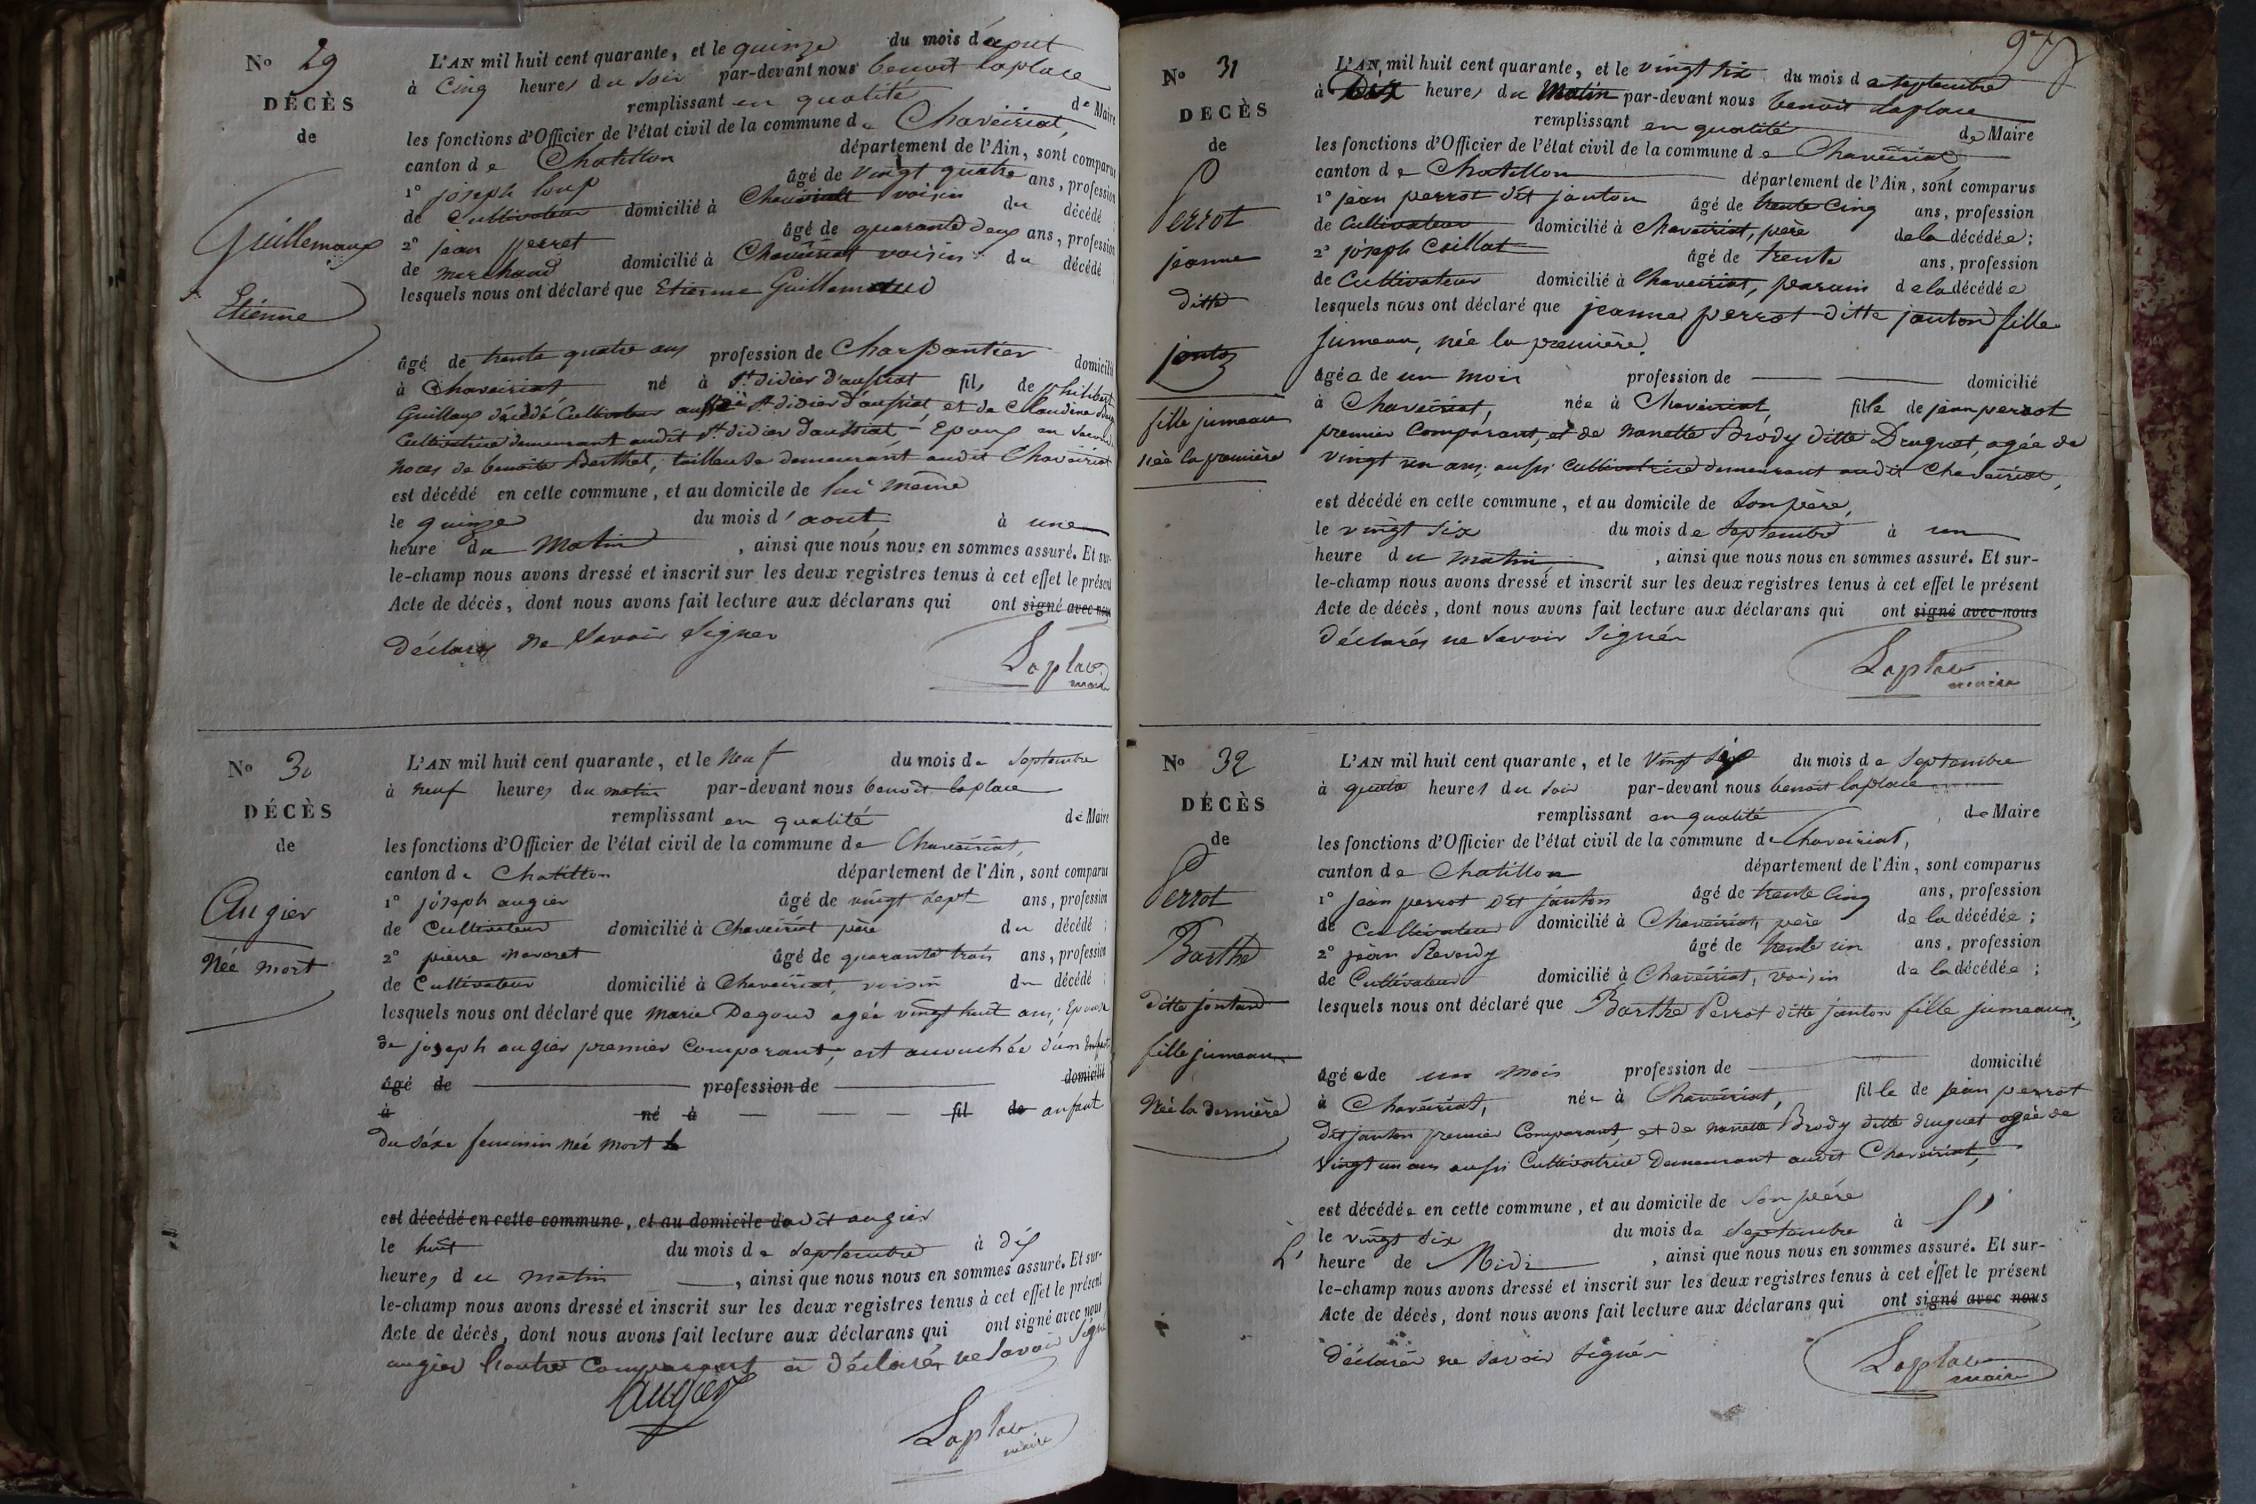 No 29
DÉCÈS
de
Guillemaux
Etienne
L'AN mil huit cent quarante, et le quinze du mois d'aout
à Cinq heures du Soir par-devant nous benoit laplace
remplissant en qualité de Maire
les fonctions d'Officier de l'état civil de la commune de Chaveiriat,
canton de Chatillon département de l'Ain, sont comparus
1° joseph loup âgé de vingt quatre ans, profession
de Cultivateur domicilié à Chaveiriat voisin du décédé
2° jean perret âgé de quarante deux ans, profession
de marchand domicilié à Chaveiriat voisin du décédé
lesquels nous ont déclaré que Etienne Guillemaud
âgé de trente quatre ans profession de Charpantier domicilié
à Chaveiriat né à St didier d'aussiat fils de philibert
décédé Cultivateur St didier d'aussiat, et de Claudine
Cultivatrice demeurant audit St didier d'aussiat, Epoux en Second
noces de benoite Berthet, tailleuse demeurant audit Chaveiriat
est décédé en cette commune, et au domicile de lui même
le quinze du mois d'aout à une
heure du Matin, ainsi que nous nous en sommes assuré. Et sur-
le-champ nous avons dressé et inscrit sur les deux registres tenus à cet effet le présent
Acte de décès, dont nous avons fait lecture aux déclarans qui ont signé avec nous
déclarés ne Savoir Signer
Laplace
maire
No 30
DÉCÈS
de
Augier
Née mort
L'AN mil huit cent quarante, et le neuf du mois de Septembre
à neuf heures du matin par-devant nous benoit laplace
remplissant en qualité de Maire
les fonctions d'Officier de l'état civil de la commune de Chaveiriat,
canton de Chatillon département de l'Ain, sont comparus
1° joseph augier âgé de vingt sept ans, profession
de Cultivateur domicilié à Chaveiriat père du décédé ;
2° pierre navoret âgé de quarante trois ans, profession
de Cultivateur domicilié à Chaveiriat, voisin du décédé ;
lesquels nous ont déclaré que Marie Degoud agée vingt huit ans, Epouse
de joseph augier premier Comparant, est accouchée d'un
âgé de profession de domicilié
à né à fil de anfant
du séxe feminin née mort le
est décédé en cette commune, et au domicile dudit augier
le huit du mois de Septembre à dix
heures du matin, ainsi que nous nous en sommes assuré. Et sur-
le-champ nous avons dressé et inscrit sur les deux registres tenus à cet effet le présent
Acte de décès, dont nous avons fait lecture aux déclarans qui ont signé avec nous
augier l'autre Comparant a déclaré ne Savoir Signé
augier
Laplace
maire
97
No 31
DECÈS
de
Perrot
jeanne
ditte
janton
fille jumeau
née la première
L'AN mil huit cent quarante, et le vingt six du mois de Septembre
à Dix heures du Matin par-devant nous benoit laplace
remplissant en qualité de Maire
les fonctions d'Officier de l'état civil de la commune de Chaveiriat
canton de Chatillon département de l'Ain, sont comparus
1° jean perrot dit janton âgé de trente Cinq ans, profession
de Cultivateur domicilié à Chaveiriat, père de la décédée ;
2° joseph Caillat âgé de trente ans, profession
de Cultivateur domicilié à Chaveiriat, parain de la décédée
lesquels nous ont déclaré que jeanne perrot ditte janton fille
jumeau, née la première,
âgée de un mois profession de domicilié
à Chaveiriat, née à Chaveiriat, fille de jean perrot
premier Comparant, et de nanette Brody ditte Druguet, agée de
vingt un ans, aussi Cultivatrice demeurant audit Chaveiriat,
est décédé en cette commune, et au domicile de Son père,
le vingt six du mois de Septembre à un
heure du matin, ainsi que nous nous en sommes assuré. Et sur-
le-champ nous avons dressé et inscrit sur les deux registres tenus à cet effet le présent
Acte de décès, dont nous avons fait lecture aux déclarans qui ont signé avec nous
déclarés ne Savoir Signér
Laplace
maire
No 32
DÉCÈS
de
Perrot
Barthe
ditte janton
fille jumeau
Née la dernière
L'AN mil huit cent quarante, et le Vingt Six du mois de Septembre
à quatre heures du Soir par-devant nous benoit laplace
remplissant en qualité de Maire
les fonctions d'Officier de l'état civil de la commune de Chaveiriat,
canton de Chatillon département de l'Ain, sont comparus
1° jean perrot dit janton âgé de trente Cinq ans, profession
de Cultivateur domicilié à Chaveiriat, père de la décédée ;
2° jean Reverdy âgé de trente un ans, profession
de Cultivateur domicilié à Chaveiriat, voisin de la décédée ;
lesquels nous ont déclaré que Barthe Perrot ditte janton fille jumeau,
âgée de un mois profession de domicilié
à Chaveiriat, née à Chaveiriat, fille de jean perrot
dit janton premier Comparant, et de nanette Brody ditte druguet agée de
vingt un ans aussi Cultivatrice Demeurant audit Chaveiriat,
est décédée en cette commune, et au domicile de Son père
le vingt six du mois de Septembre à L'
L' heure de Midi, ainsi que nous nous en sommes assuré. Et sur-
le-champ nous avons dressé et inscrit sur les deux registres tenus à cet effet le présent
Acte de décès, dont nous avons fait lecture aux déclarans qui ont signé avec nous
déclarér ne Savoir Signér
Laplace
maire